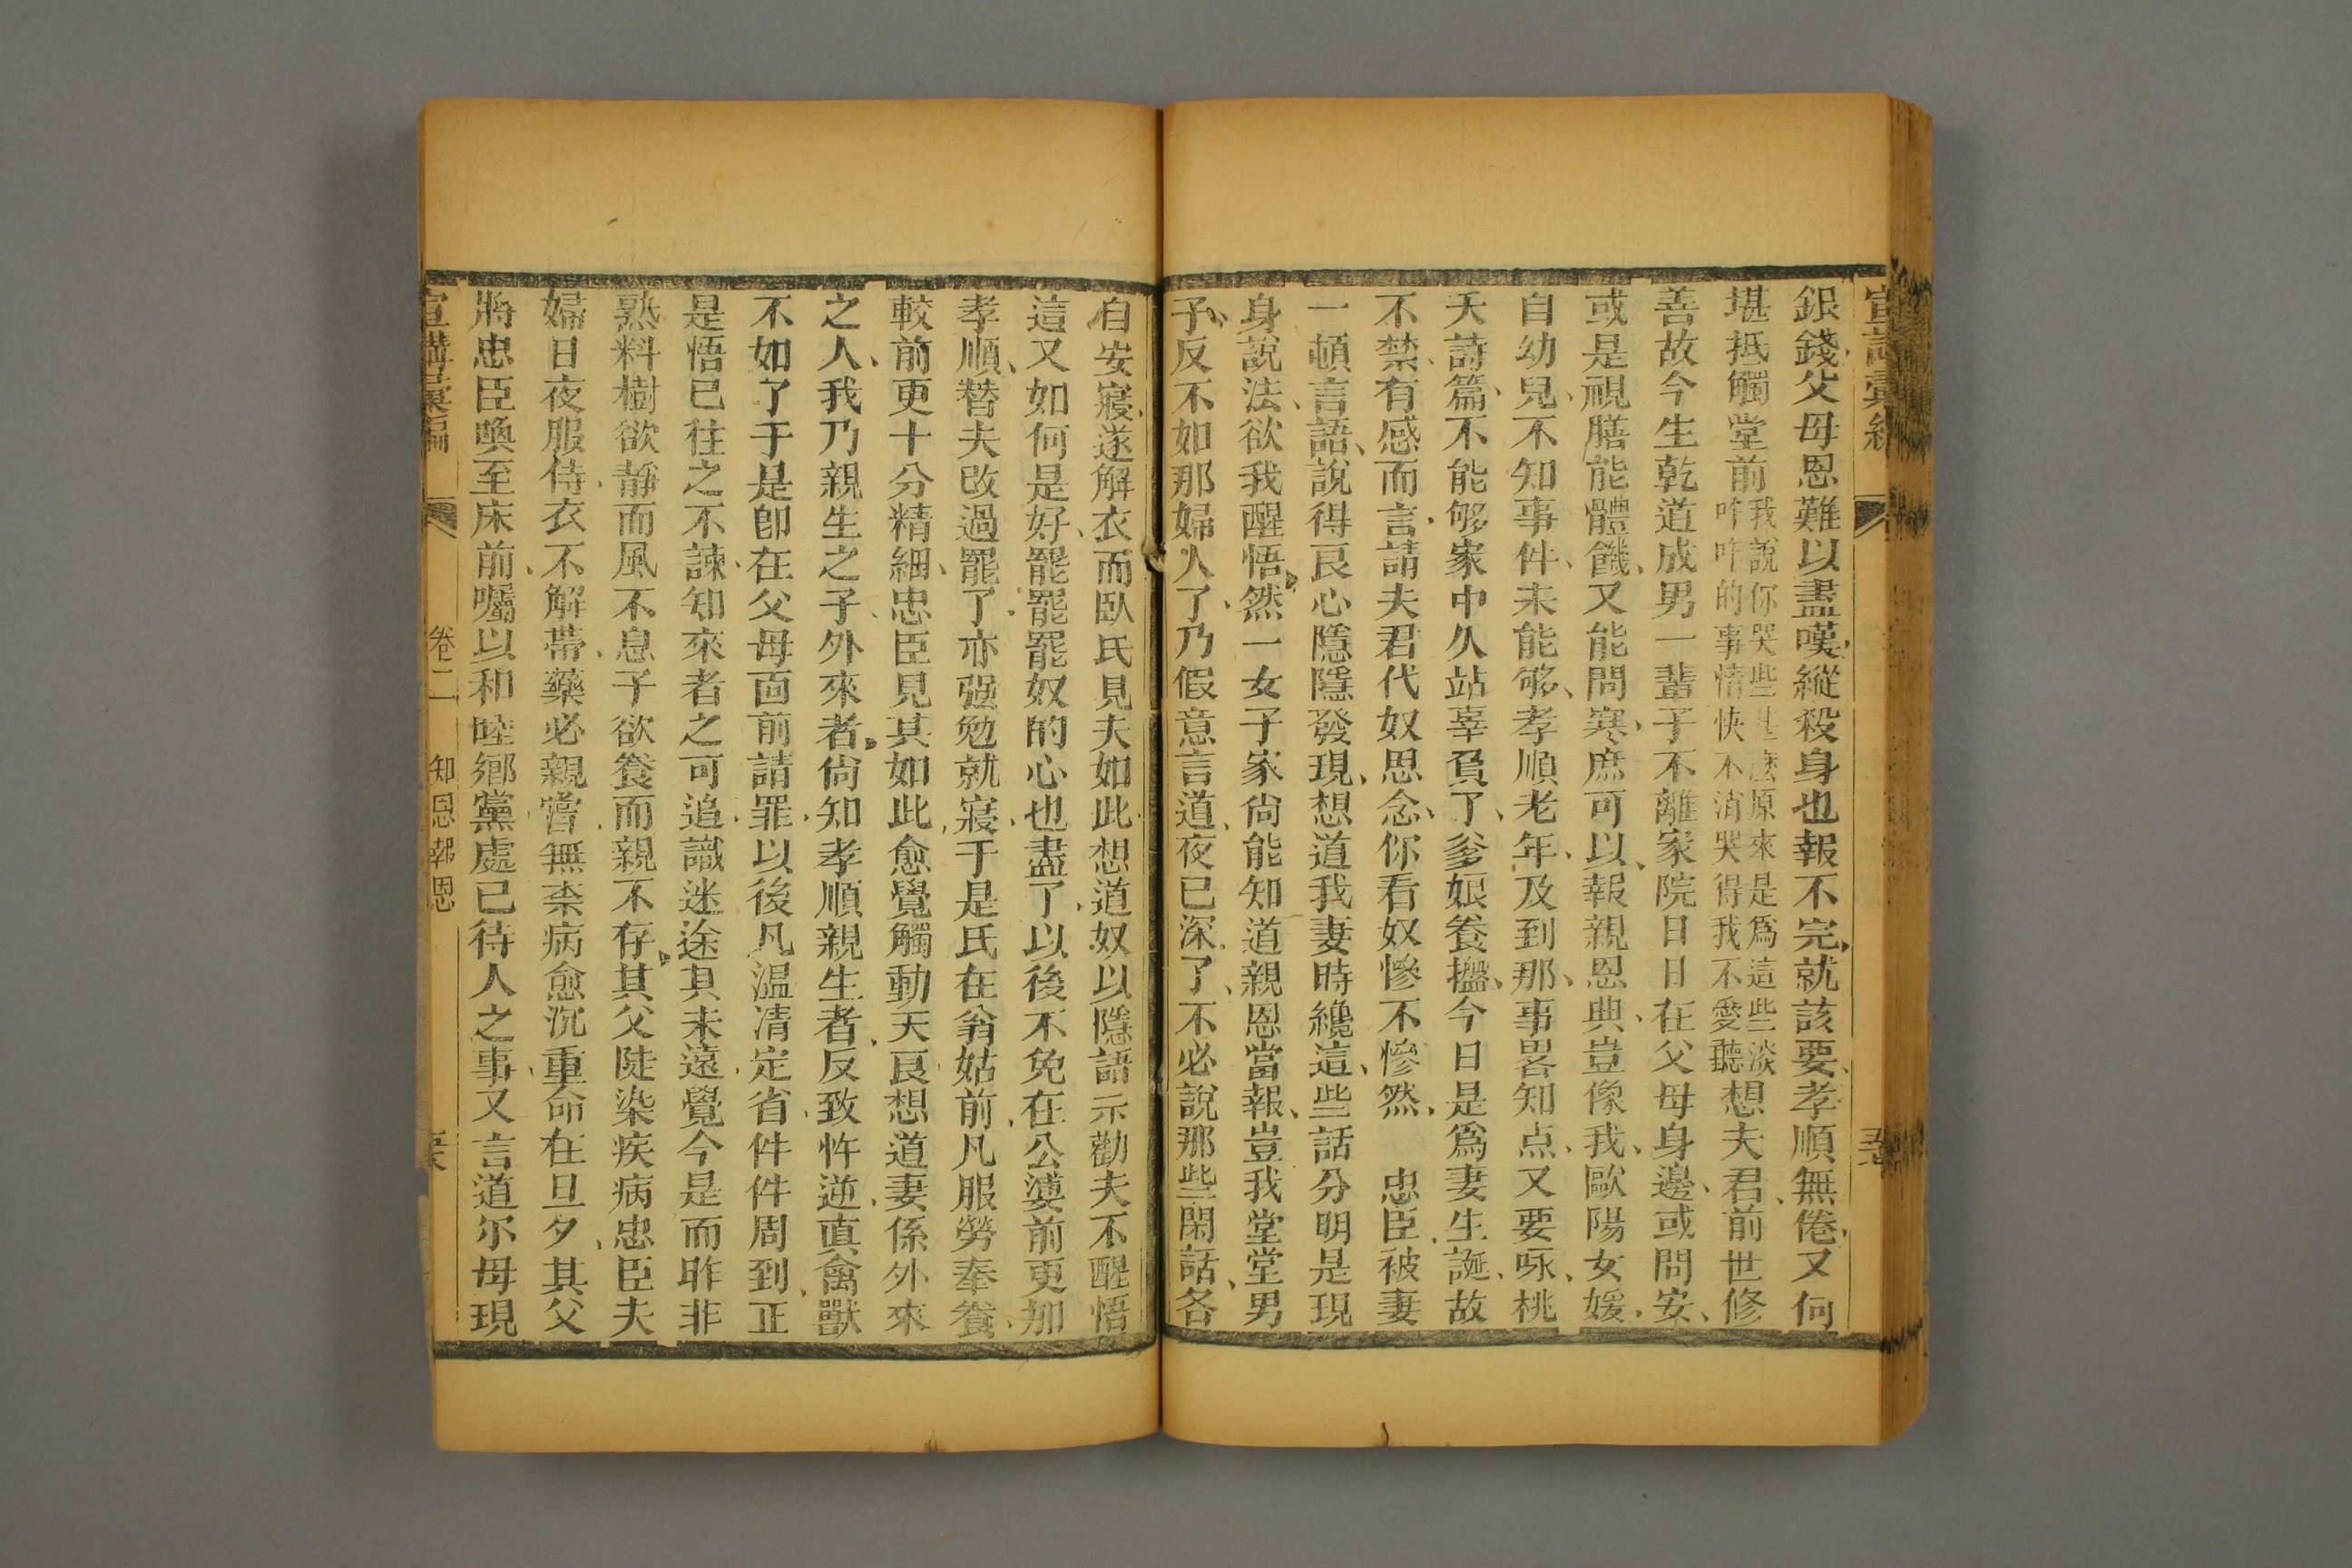 宣講彙編
銀錢父母恩難以盡嘆縱殺身也報不完就該要孝順無倦又何
堪抵觸堂前我說你哭些甚麼原來是爲這些淡咋咋的事情快不消哭得我不愛聽想夫君前世修
善故今生乾道成男一輩子不離家院日日在父母身邊或問安
或是視膳能體饑又能問寒庶可以報親恩典豈像我歐陽女媛
自幼兒不知事件未能够孝順老年及到那事畧知点又要咏桃
夭詩篇不能够家中久站辜負了爹娘養盤今日是爲妻生誕故
不禁有感而言請夫君代奴思念你看奴慘不慘然 忠臣被妻
一頓言語說得良心隱隱發現想道我妻時纔這些話分明是現
身說法欲我醒悟然一女子家尙能知道親恩當報豈我堂堂男
子反不如那婦人了乃假意言道夜已深了不必說那些閑話各
自安寢遂解衣而臥氏見夫如此想道奴以隱語示勸夫不醒悟
這又如何是好罷罷罷奴的心也盡了以後不免在公婆前更加
孝順替夫改過罷了亦强勉就寢于是氏在翁姑前凡服勞奉養
較前更十分精細忠臣見其如此愈覺觸動天良想道妻係外來
之人我乃親生之子外來者尙知孝順親生者反致忤逆眞禽獸
不如了于是卽在父母面前請罪以後凡温凊定省件件周到正
是悟已往之不諫知來者之可追識迷途其未遠覺今是而昨非
熟料樹欲靜而風不息子欲養而親不存其父陡染疾病忠臣夫
婦日夜服侍衣不解帶藥必親嘗無柰病愈沉重命在旦夕其父
將忠臣喚至床前囑以和睦鄉黨處已待人之事又言道尔母現
宣講彙編 卷二 知恩報恩